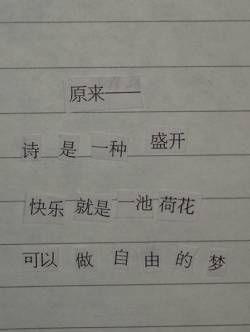 原来——
诗 是 一种 盛开
快乐 就是 一池 荷花
可以 做 自 由 的 梦